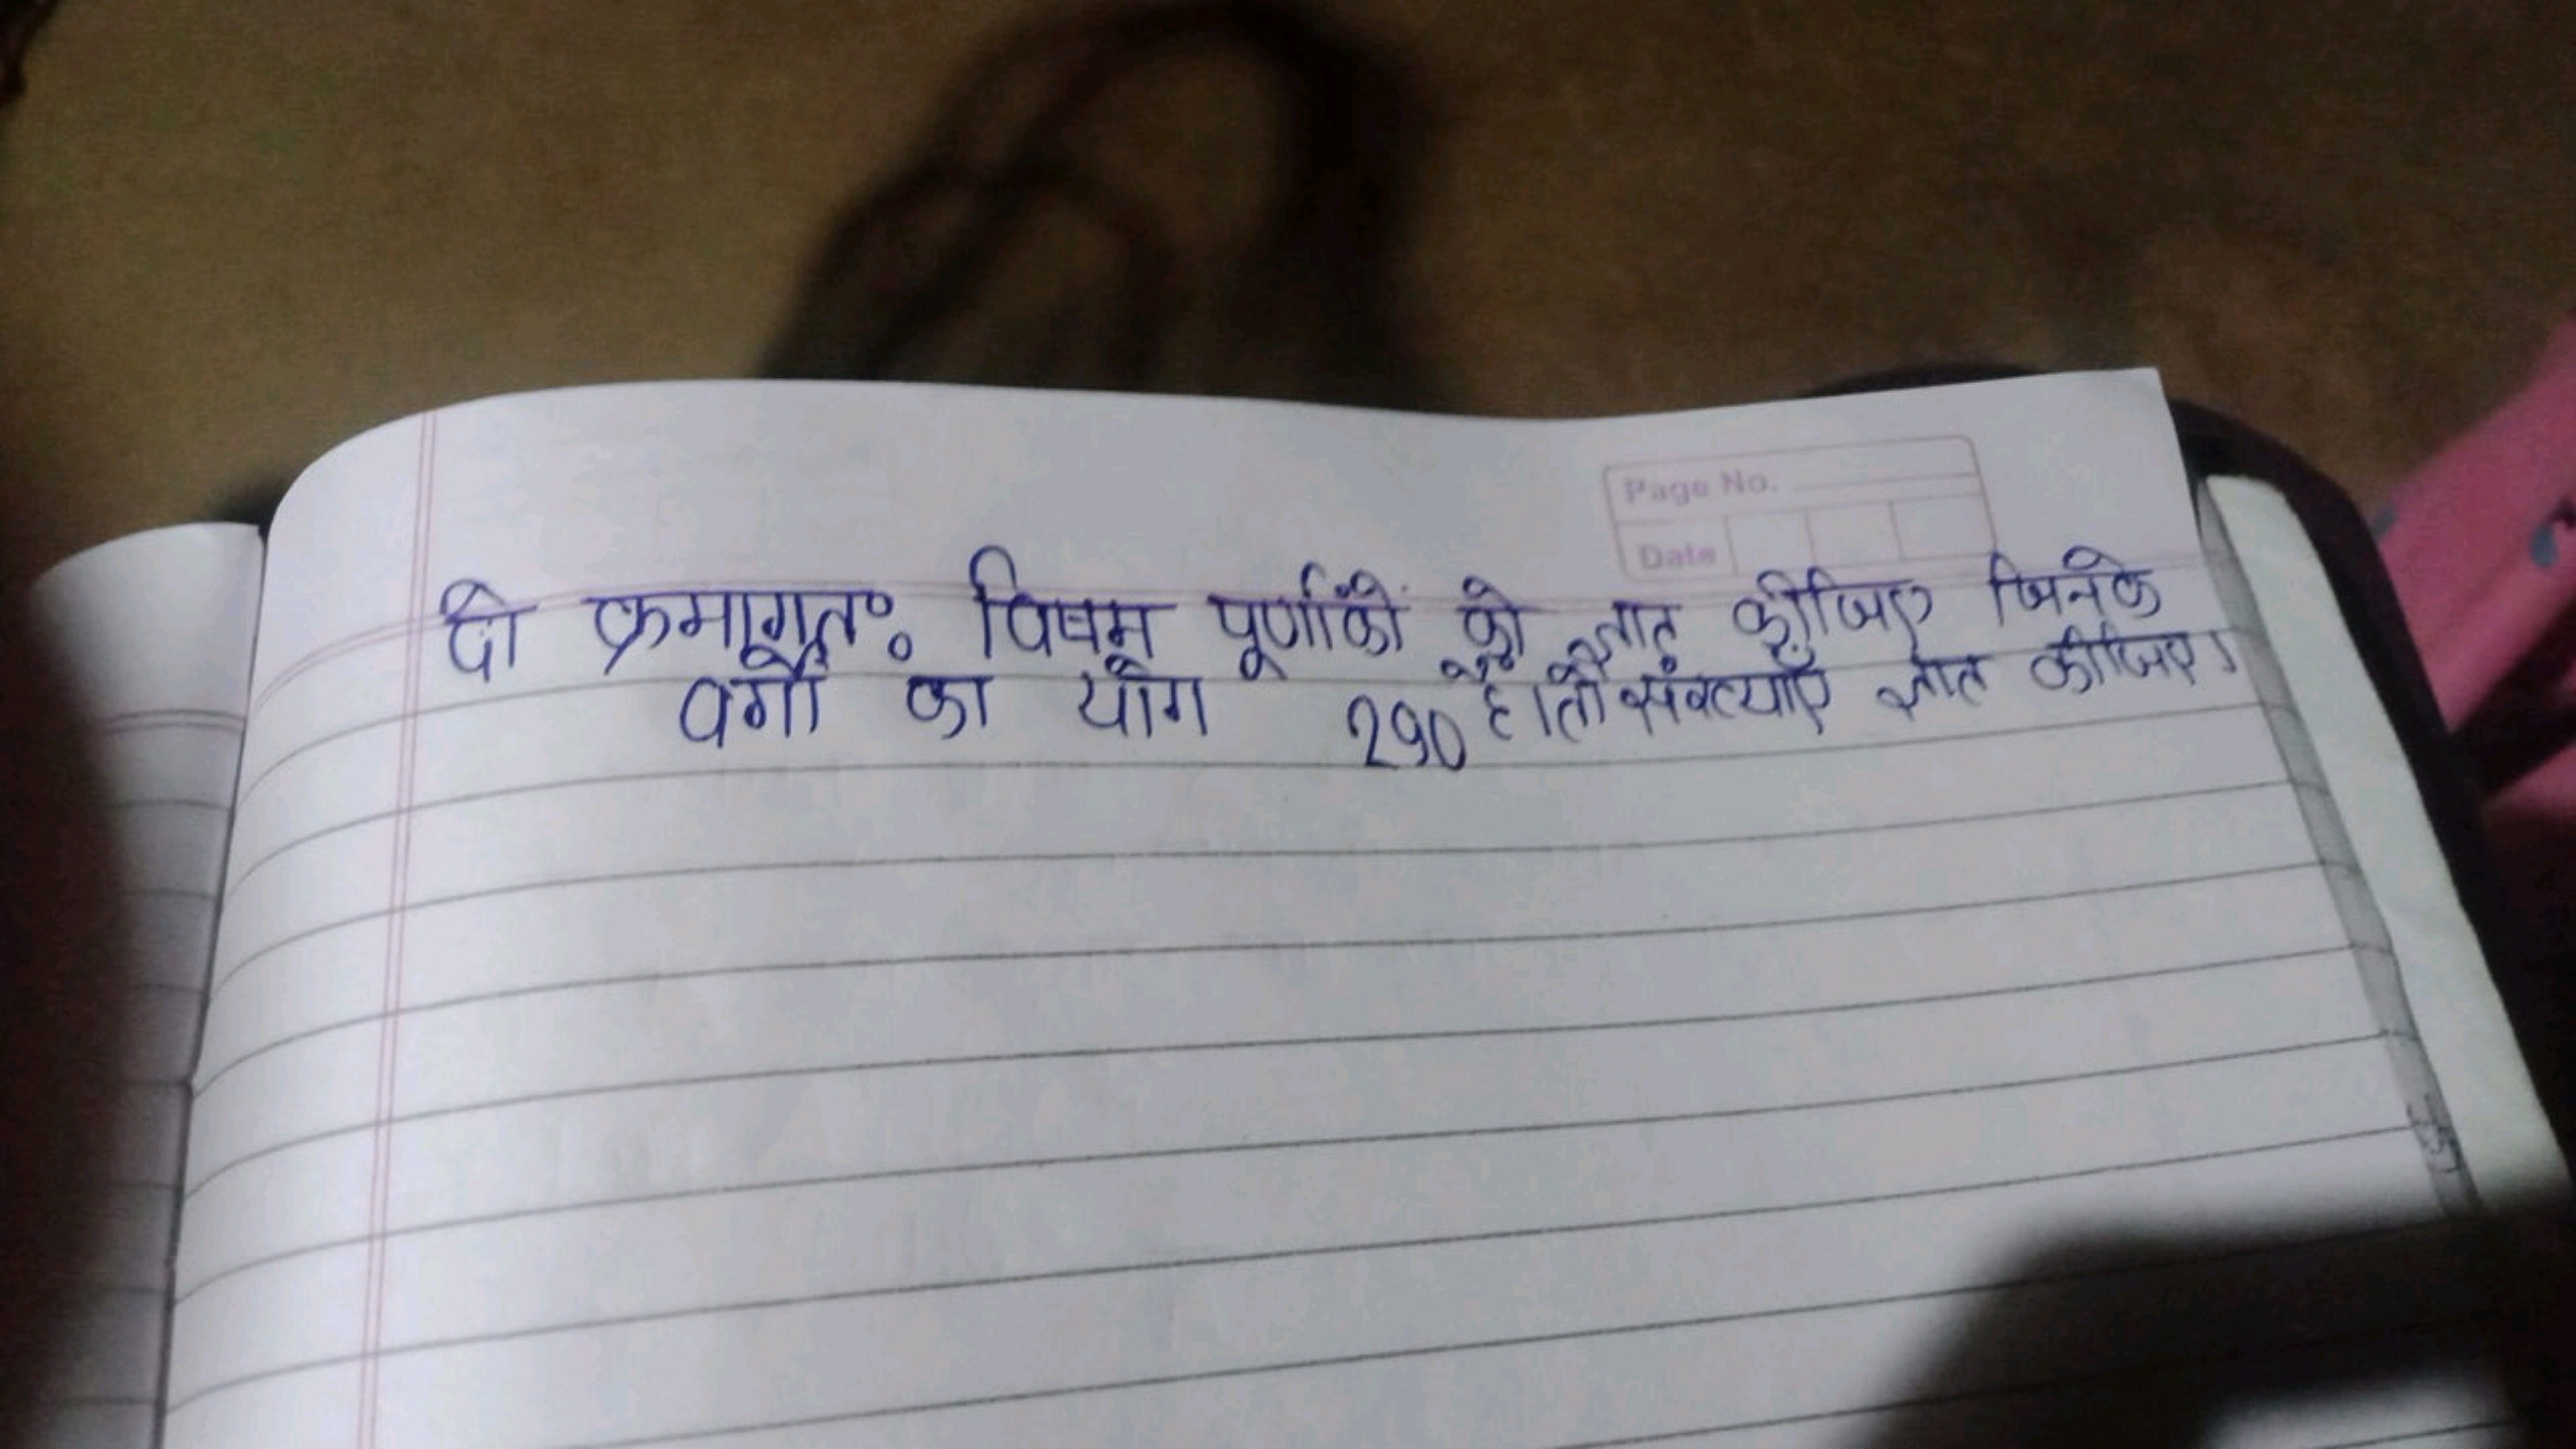 Page No.
Date
दो क्रमागतः विषम पूर्णांकों को ज्ञात कीजिए जिनके
वर्गों का योग 290 है। तो संख्याएँ ज्ञात कीजिए।